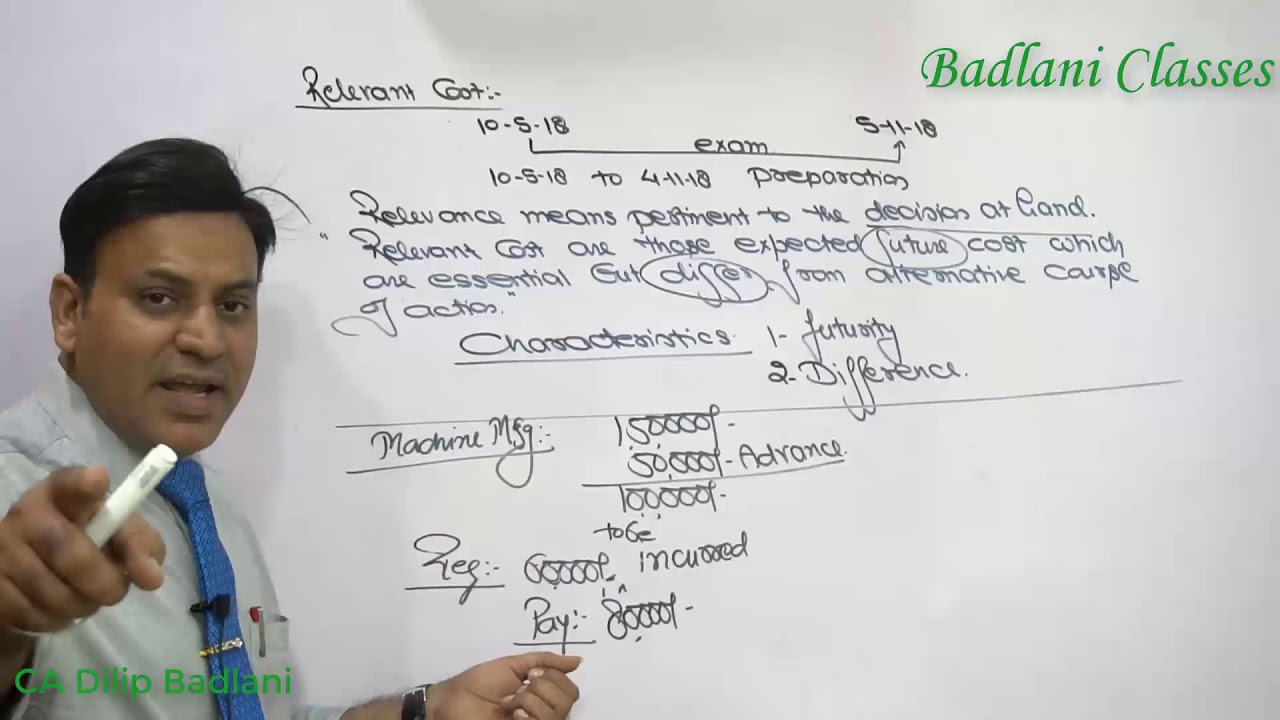 Badlani Classes
Relevant Cost:-
10-5-18 5-11-18
exam
10-5-18 to 4-11-18 preparation
Relevance means pertinent to the decision at hand.
"Relevant Cost are those expected future cost which
are essential but differ from alternative course
of action."
Characteristics 1- futurity
2- Difference.
Machine Mfg:- 150000/-
50,000/- Advance
100,000/-
to be
Req:- 60,000/- incurred
Pay:- 80,000/-
CA Dilip Badlani